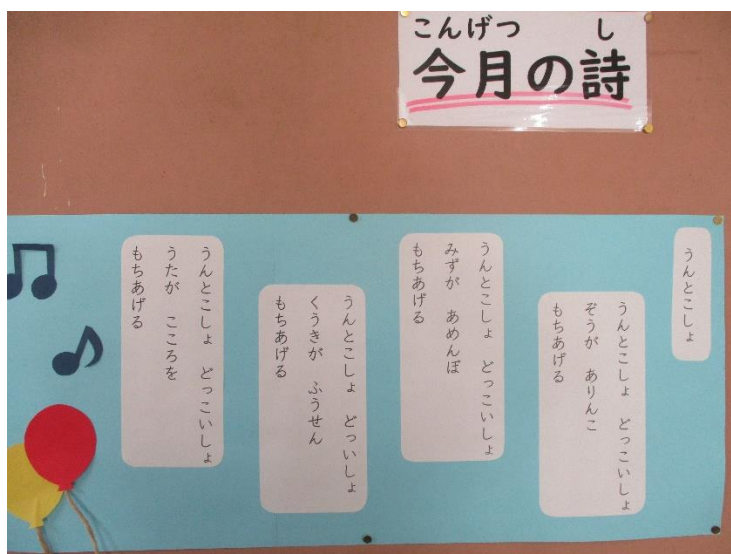 こんげつ し
今月の詩
うんとこしょ
うんとこしょ どっこいしょ
ぞうが ありんこ
もちあげる
うんとこしょ どっこいしょ
みずが あめんぼ
もちあげる
うんとこしょ どっいしょ
くうきが ふうせん
もちあげる
うんとこしょ どっこいしょ
うたが こころを
もちあげる